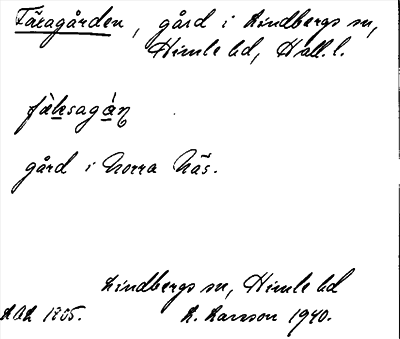 Täxagården, gård i Lindbergs sn,
Himle hd, Hall. l.
gård i Norra Näs.
Lindbergs sn, Himle hd
1805. K. Larsson 1940.